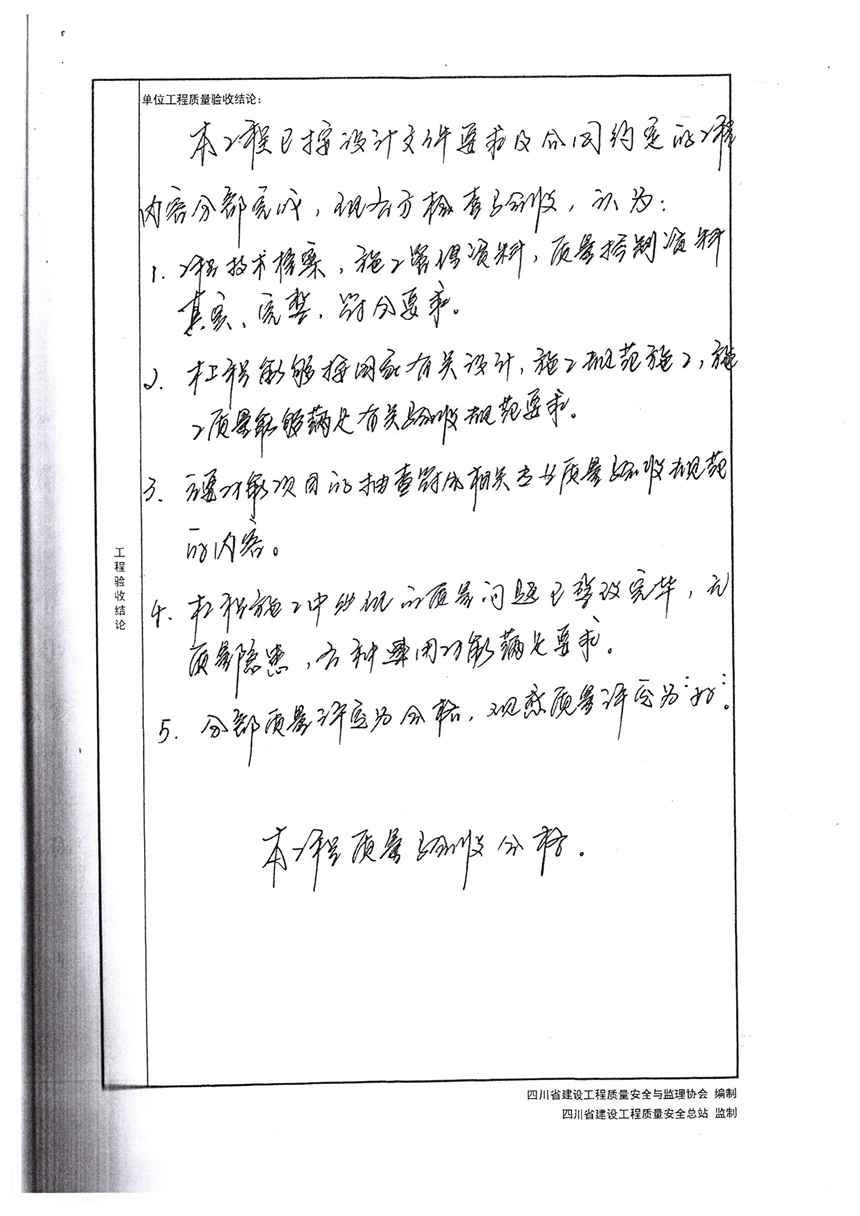 单位工程质量验收结论：
本工程已按设计文件要求及合同约定的工程
内容全部完成，现各方检查验收，认为：
1. 工程技术档案，施工管理资料，质量控制资料
真实、完整，符合要求。
2. 本工程能够按国家有关设计，施工规范施工，施
工质量能够满足有关验收规范要求。
3. 主要功能项目的抽查符合相关专业质量验收规范
的内容。
4. 本工程施工中出现的质量问题已整改完毕，无
质量隐患，各种使用功能满足要求。
5. 分部质量评定为合格，观感质量评定为"好"。
本工程质量验收合格。
工程验收结论
四川省建设工程质量安全与监理协会 编制
四川省建设工程质量安全总站 监制